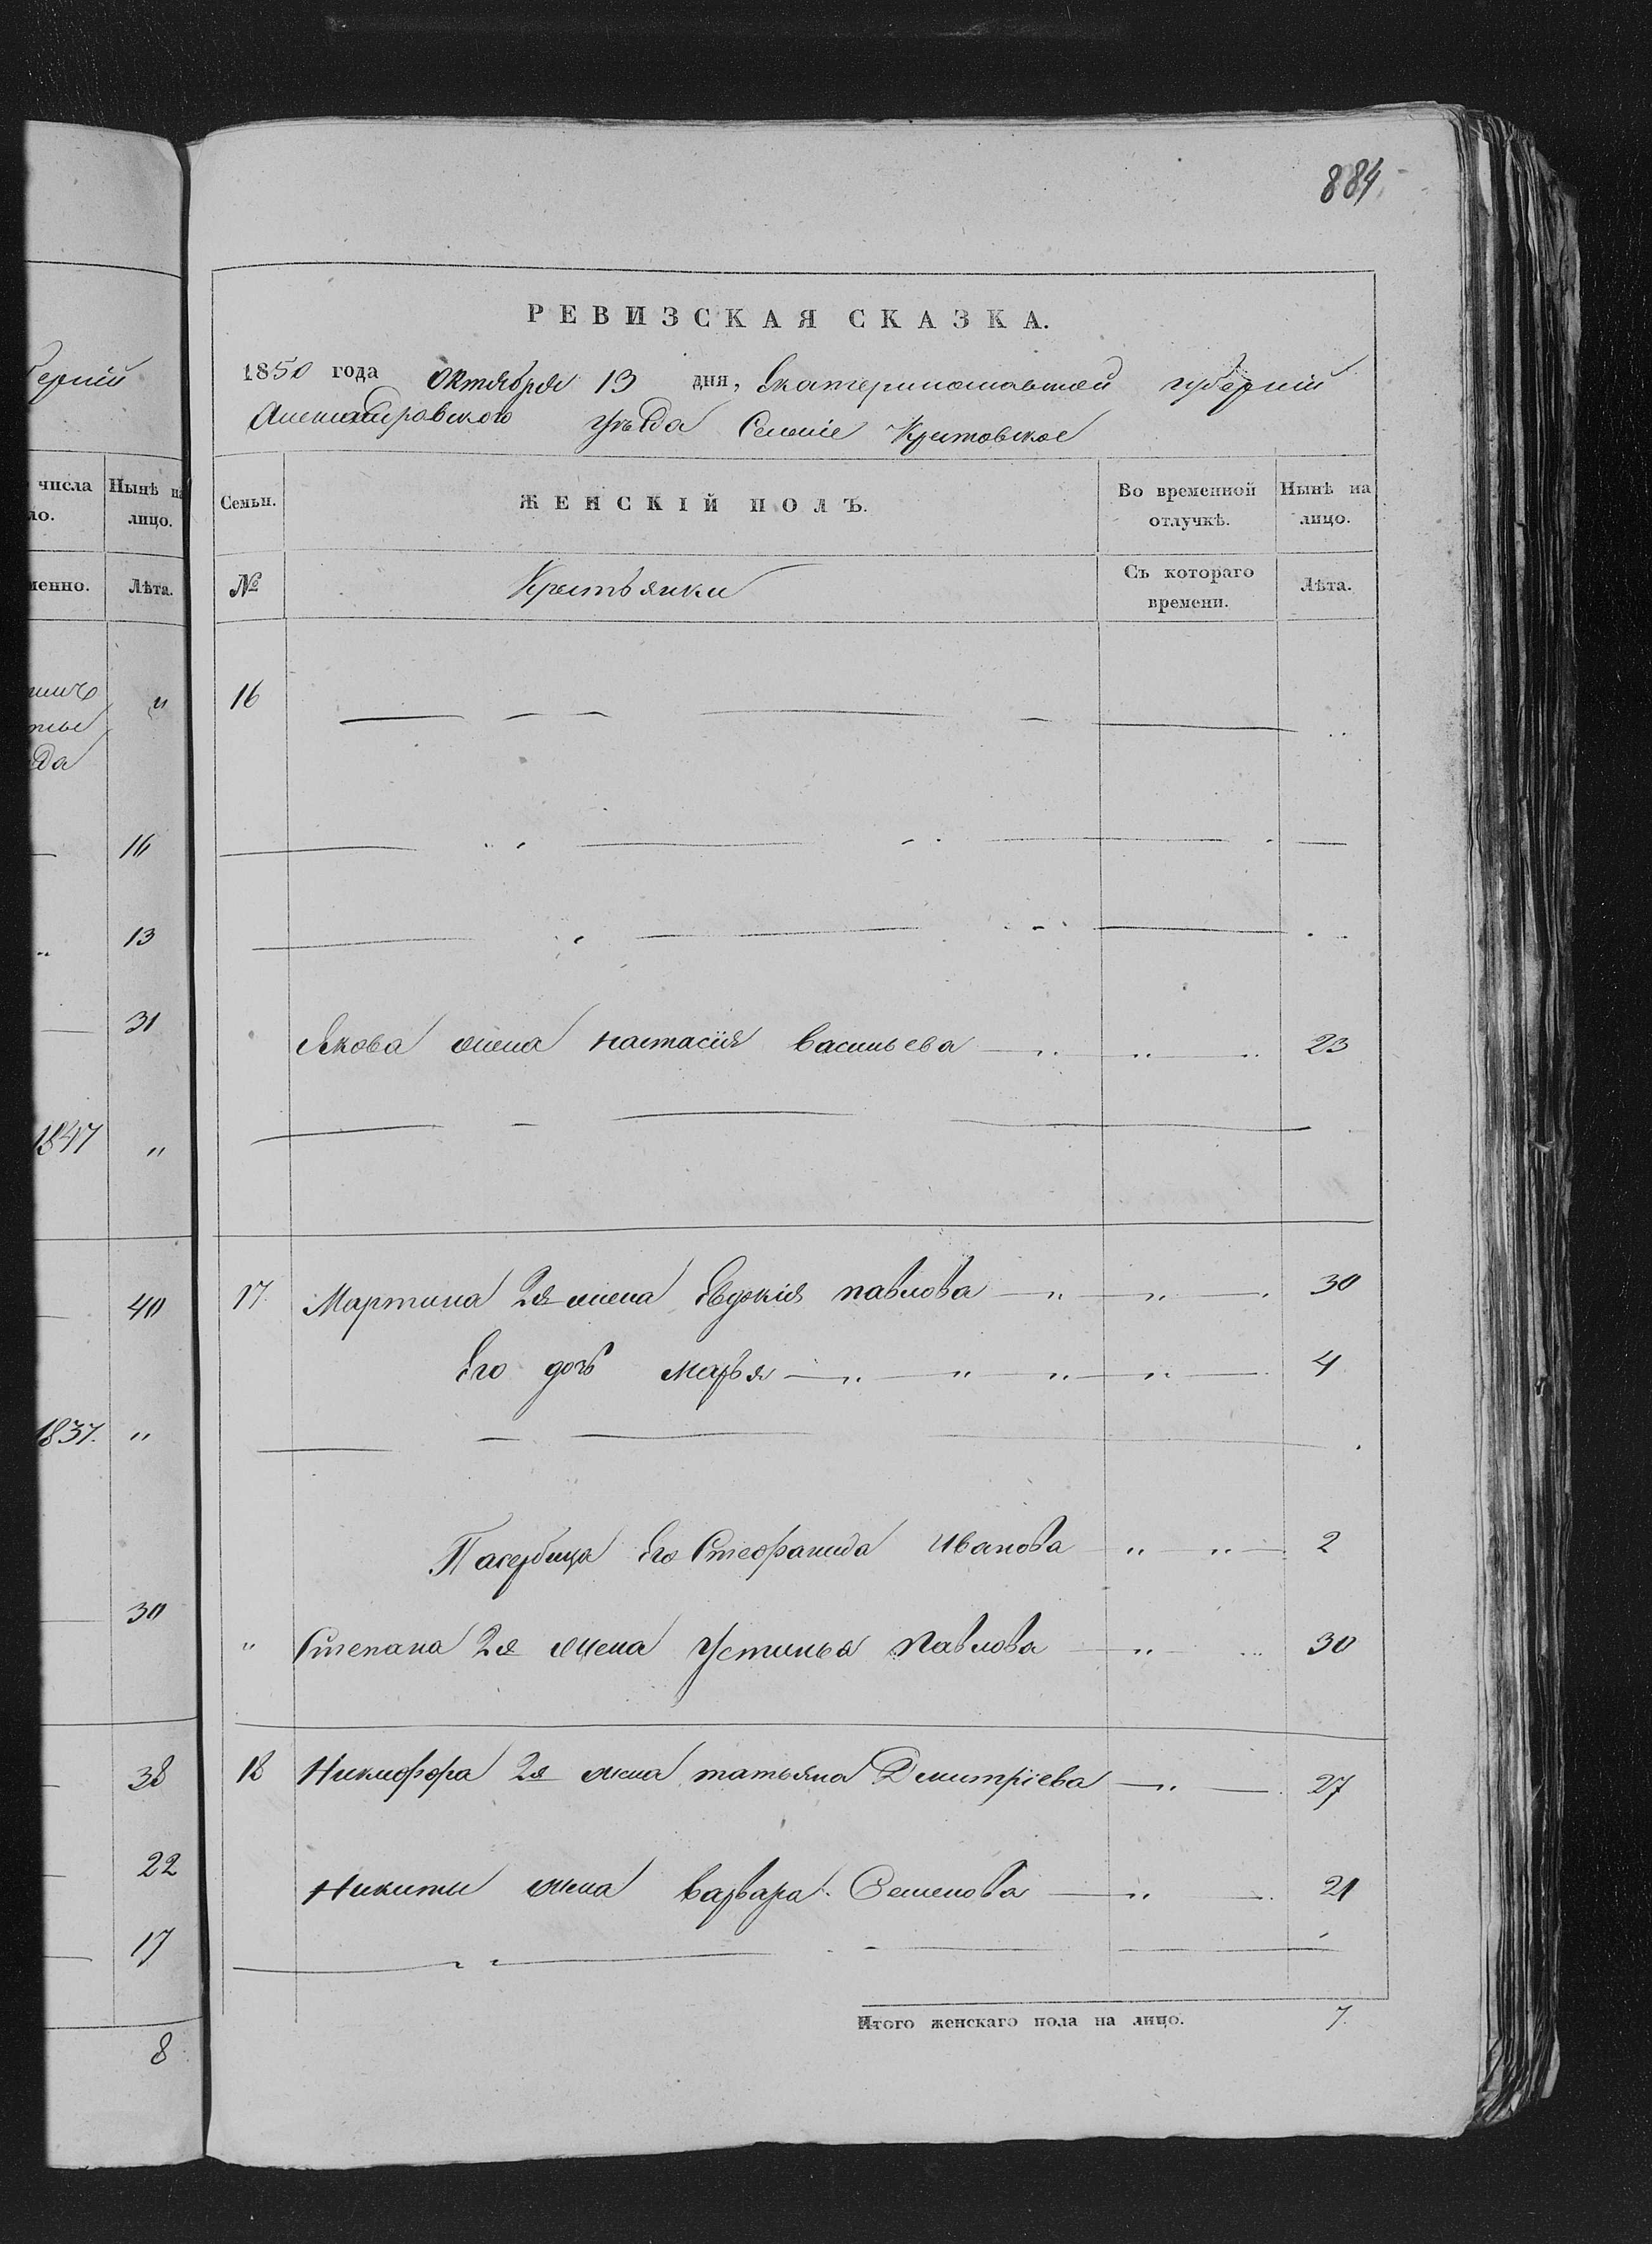 884
РЕВИЗСКАЯ СКАЗКА.
1850 года Октября 13 дня, Екатеринославской губерніи
Александровского уѣзда Селеніе Крестовское
Семьи. ЖЕНСКІЙ ПОЛЪ. Во временной отлучкѣ. Нынѣ на лицо.
№ Крестьянки Съ котораго времени. Лѣта.
16
Якова жена настасія васильева 23
17. Мартина 2я жена Евдокія павлова 30
Его дочь марья 4
Пасербица Его Стефанида Иванова 2
" Степана 2я жена Устинья Павлова 30
18 Никифора 2я жена татьяна Дмитріева 27
Никиты жена варвара Семенова 21
Итого женскаго пола на лицо. 7.
берніи
числа Нынѣ на
ло. лицо.
менно. Лѣта.
да
16
13
31
1847 "
40
1837. "
30
38
22
17
8